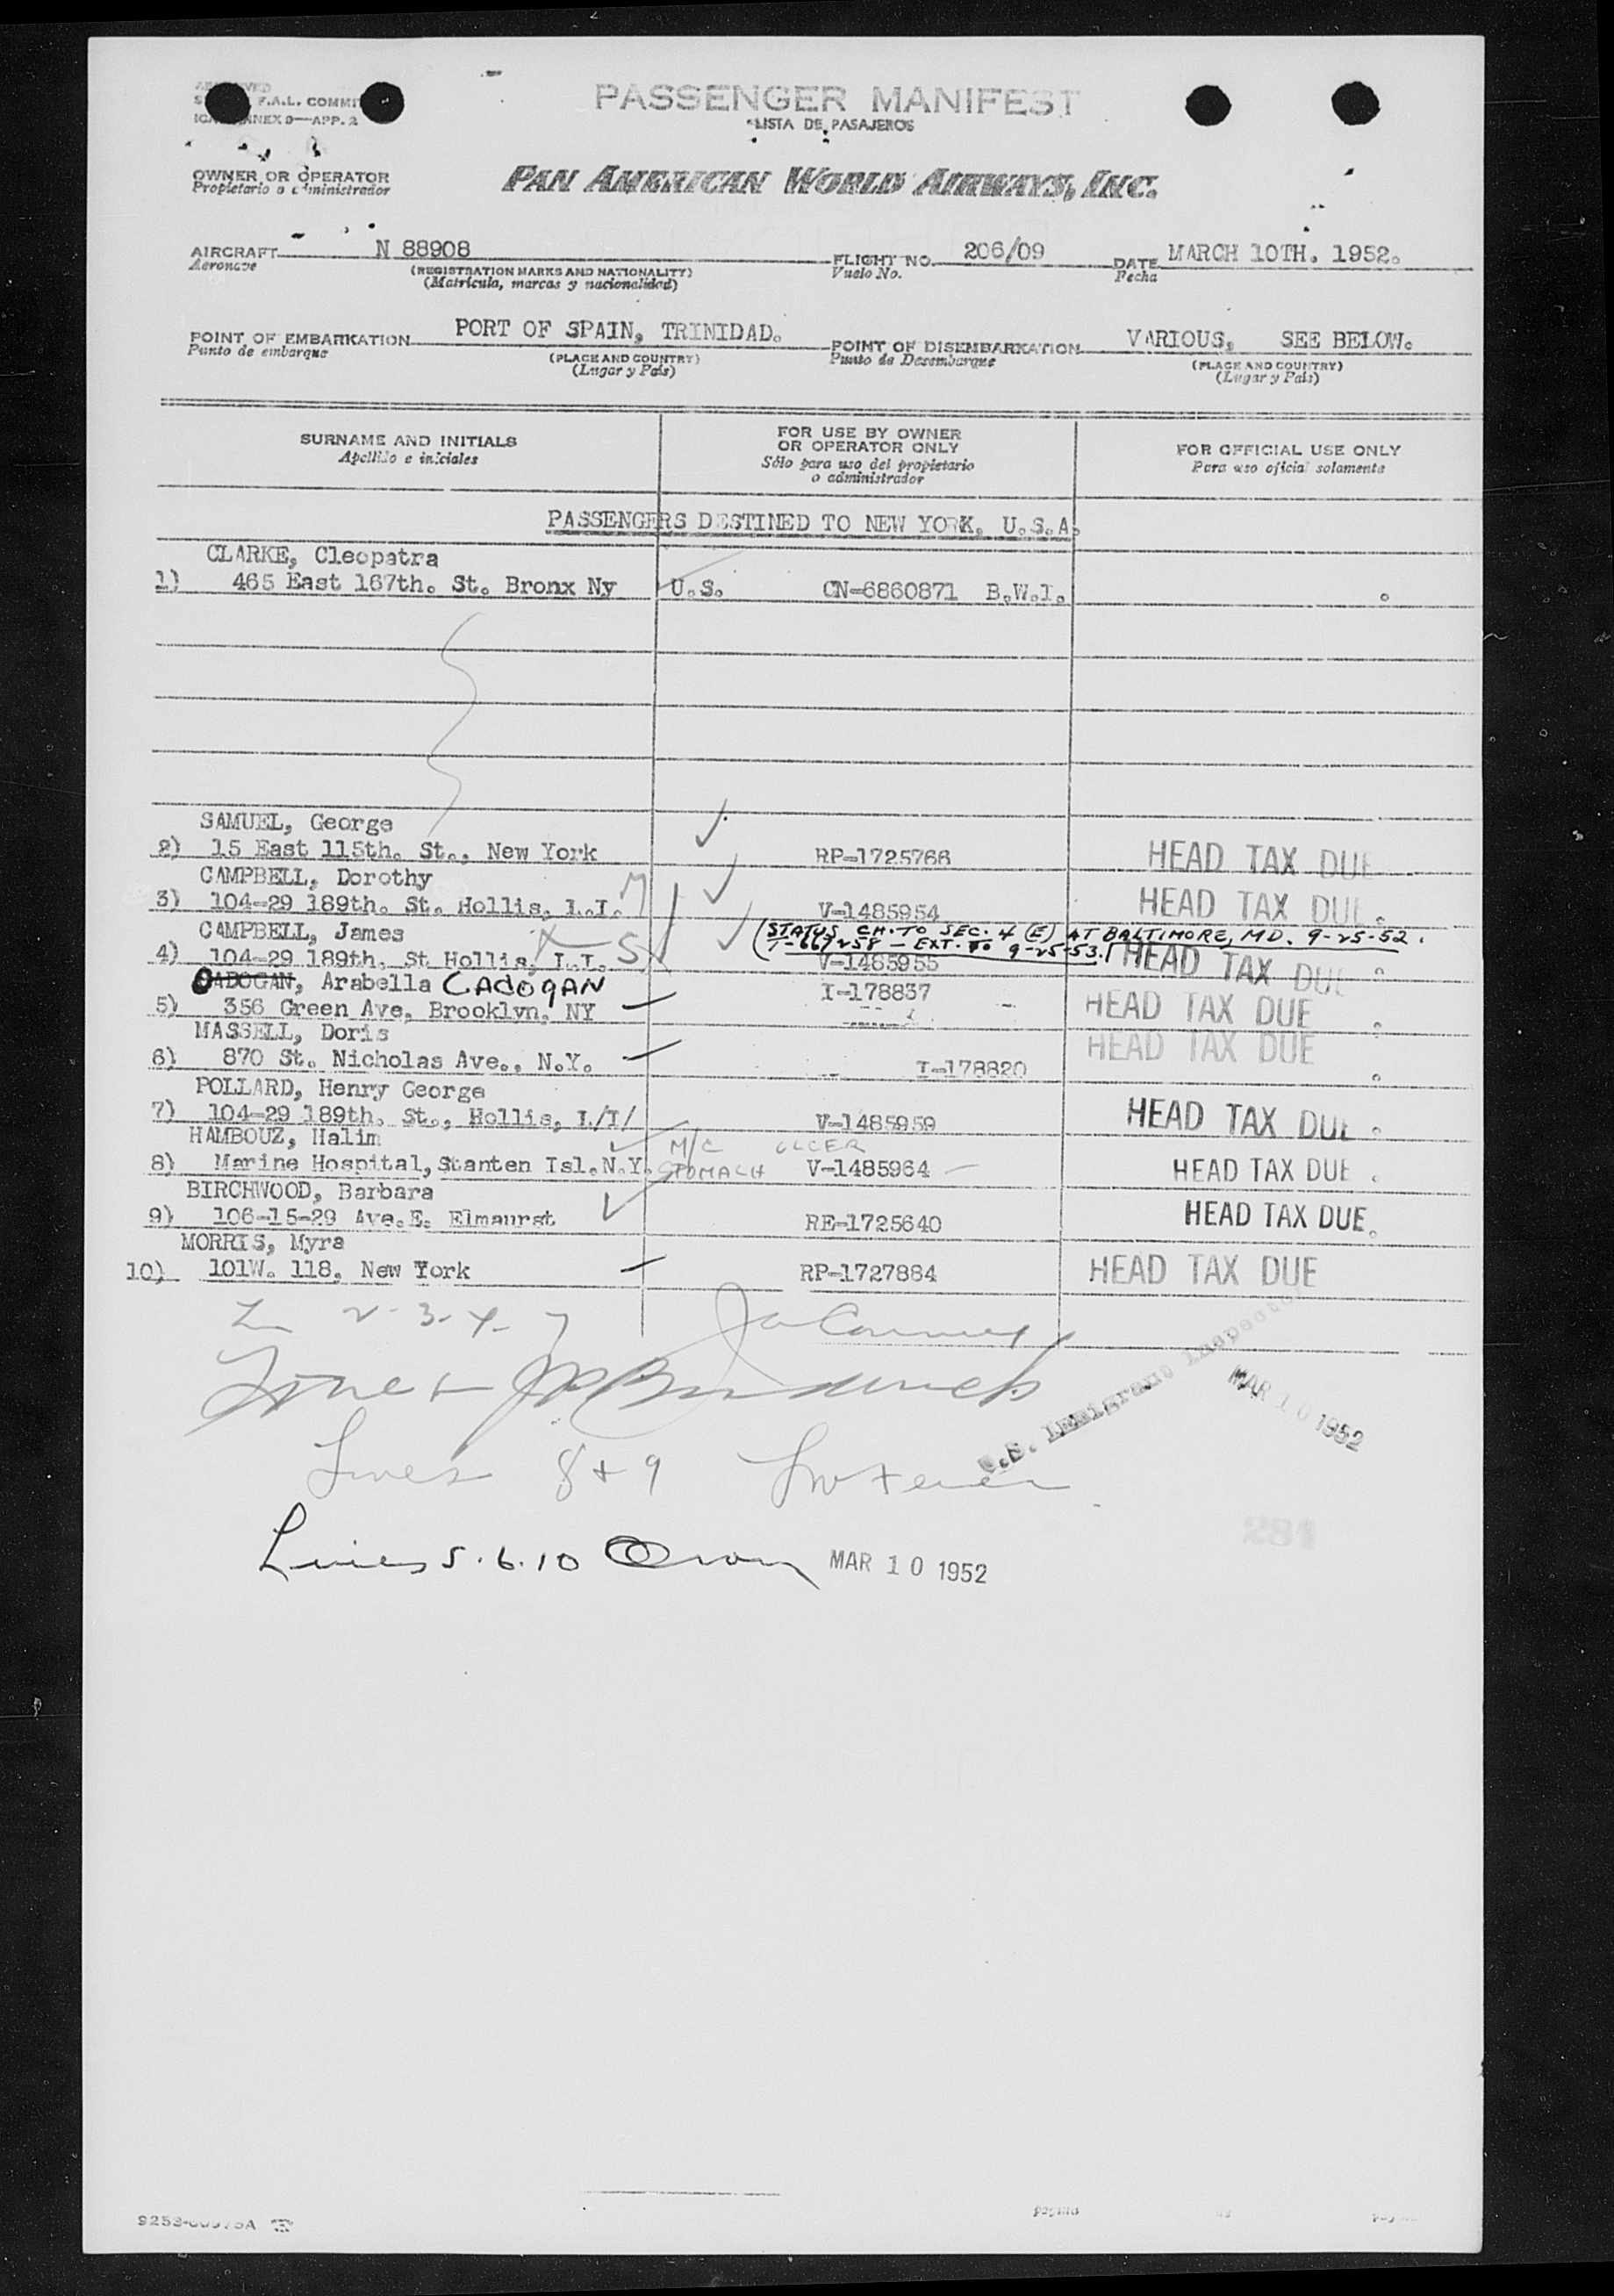 PASSENGER MANIFEST
LISTA DE PASAJEROS
F.A.L.
ANNEX 9—APP. 2
OWNER OR OPERATOR
Propietario o administrador
PAN AMERICAN WORLD AIRWAYS, INC.
AIRCRAFT N 88908
Aeronave
(REGISTRATION MARKS AND NATIONALITY)
(Matricula, marcas y nacionalidad)
FLIGHT NO. 206/09
Vuelo No.
DATE MARCH 10TH. 1952.
Fecha
POINT OF EMBARKATION PORT OF SPAIN, TRINIDAD.
Punto de embarque
(PLACE AND COUNTRY)
(Lugar y País)
POINT OF DISEMBARKATION VARIOUS, SEE BELOW.
Punto de Desembarque
(PLACE AND COUNTRY)
(Lugar y País)
SURNAME AND INITIALS
Apellido e iniciales
FOR USE BY OWNER
OR OPERATOR ONLY
Sólo para uso del propietario
o administrador
FOR OFFICIAL USE ONLY
Para uso oficial solamente
PASSENGERS DESTINED TO NEW YORK. U.S.A.
CLARKE, Cleopatra
1) 465 East 167th. St. Bronx Ny U.S. CN-6860871 B.W.I.
SAMUEL, George
2) 15 East 115th. St., New York RP-1725766 HEAD TAX DUE
CAMPBELL, Dorothy
3) 104-29 189th. St. Hollis, I.I. M V-1485954 HEAD TAX DUE.
CAMPBELL, James
(STATUS CH. TO SEC. 4 (E) AT BALTIMORE, MD. 9-25-52.
T-667258 — EXT. TO 9-25-53.)
4) 104-29 189th. St Hollis, I.I. S V-1485955 HEAD TAX DUE
CADOGAN, Arabella CADOGAN I-178837
5) 356 Green Ave. Brooklyn, NY HEAD TAX DUE
MASSELL, Doris
6) 870 St. Nicholas Ave., N.Y. I-178820 HEAD TAX DUE
POLLARD, Henry George
7) 104-29 189th. St., Hollis, I/I/ V-1485959 HEAD TAX DUE.
HAMBOUZ, Halim M/C ULCER
8) Marine Hospital, Stanten Isl. N.Y. STOMACH V-1485964 HEAD TAX DUE.
BIRCHWOOD, Barbara
9) 106-15-29 Ave. E. Elmaurst RE-1725640 HEAD TAX DUE.
MORRIS, Myra
10) 101W. 118, New York RP-1727884 HEAD TAX DUE
2-3-4-7
U.S. Immigrant Inspector
MAR 10 1952
Lines 8+9
Lines 5.6.10 MAR 10 1952
281